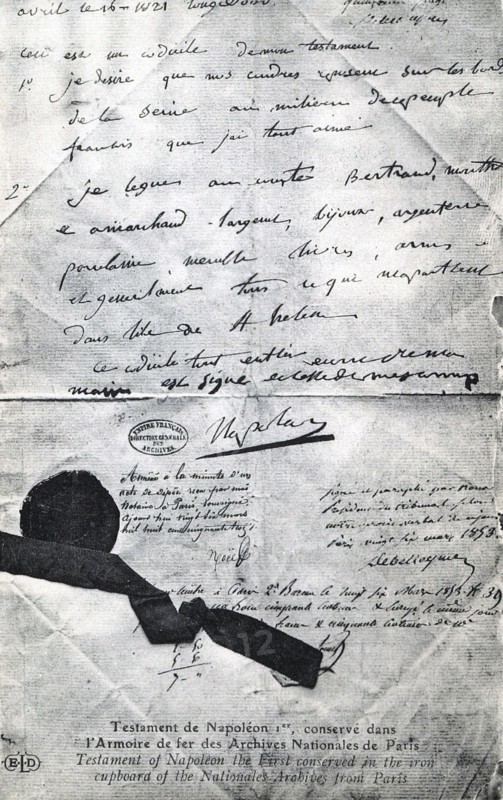 avril le 16 - 1821 longwood.
ceci est un codicile de mon testament.
1º je desire que mes cendres reposent sur les bords
de la Seine au milieu de ce peuple
français que j'ai tant aimé
2º je legue au comte Bertrand, montholon
et a marchand l'argent, bijoux, argenterie
porcelaine, meubles livres, armes
et generalment tous ce qui m'appartient
dans l'ile de St helene
ce codicile tout entier ecrit de ma
main est signé et scellé de mes armes
Napoleon
EMPIRE FRANÇAIS
DIRECTION GÉNÉRALE
DES
ARCHIVES
Annexé à la minute d'un
acte de dépôt reçu par moi
Notaire à Paris soussigné
aujourd'hui vingt six mars
mil huit cent cinquante trois
signé et paraphé par
président du tribunal
notre procès verbal
Paris vingt six mars 1853
Debelleyme
à Paris 2e Bureau le vingt six Mars 1853
cinquante
12
Testament de Napoléon Ier, conservé dans
l'Armoire de fer des Archives Nationales de Paris
Testament of Napoleon the First conserved in the iron
cupboard of the Nationales Archives from Paris
ELD